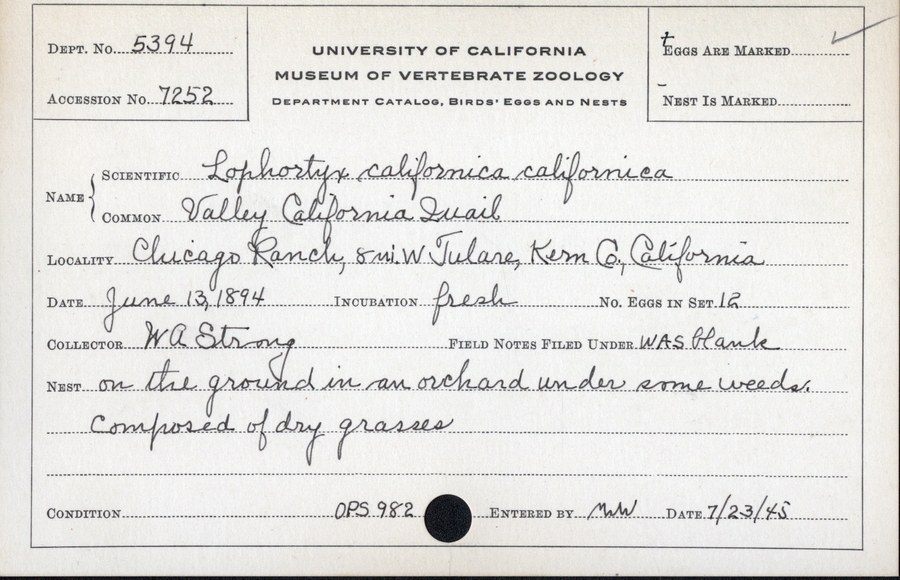 DEPT. NO. 5394
ACCESSION NO. 7252
UNIVERSITY OF CALIFORNIA
MUSEUM OF VERTEBRATE ZOOLOGY
DEPARTMENT CATALOG, BIRDS' EGGS AND NESTS
EGGS ARE MARKED
NEST IS MARKED
NAME
SCIENTIFIC Lophortyx californica californica
COMMON Valley California Quail
LOCALITY Chicago Ranch, 8 mi. W Tulare, Kern Co., California
DATE June 13, 1894 INCUBATION fresh NO. EGGS IN SET 12
COLLECTOR WA Strong FIELD NOTES FILED UNDER WAS blank
NEST on the ground in an orchard under some weeds.
Composed of dry grasses
CONDITION OPS 982 ENTERED BY MW DATE 7/23/45